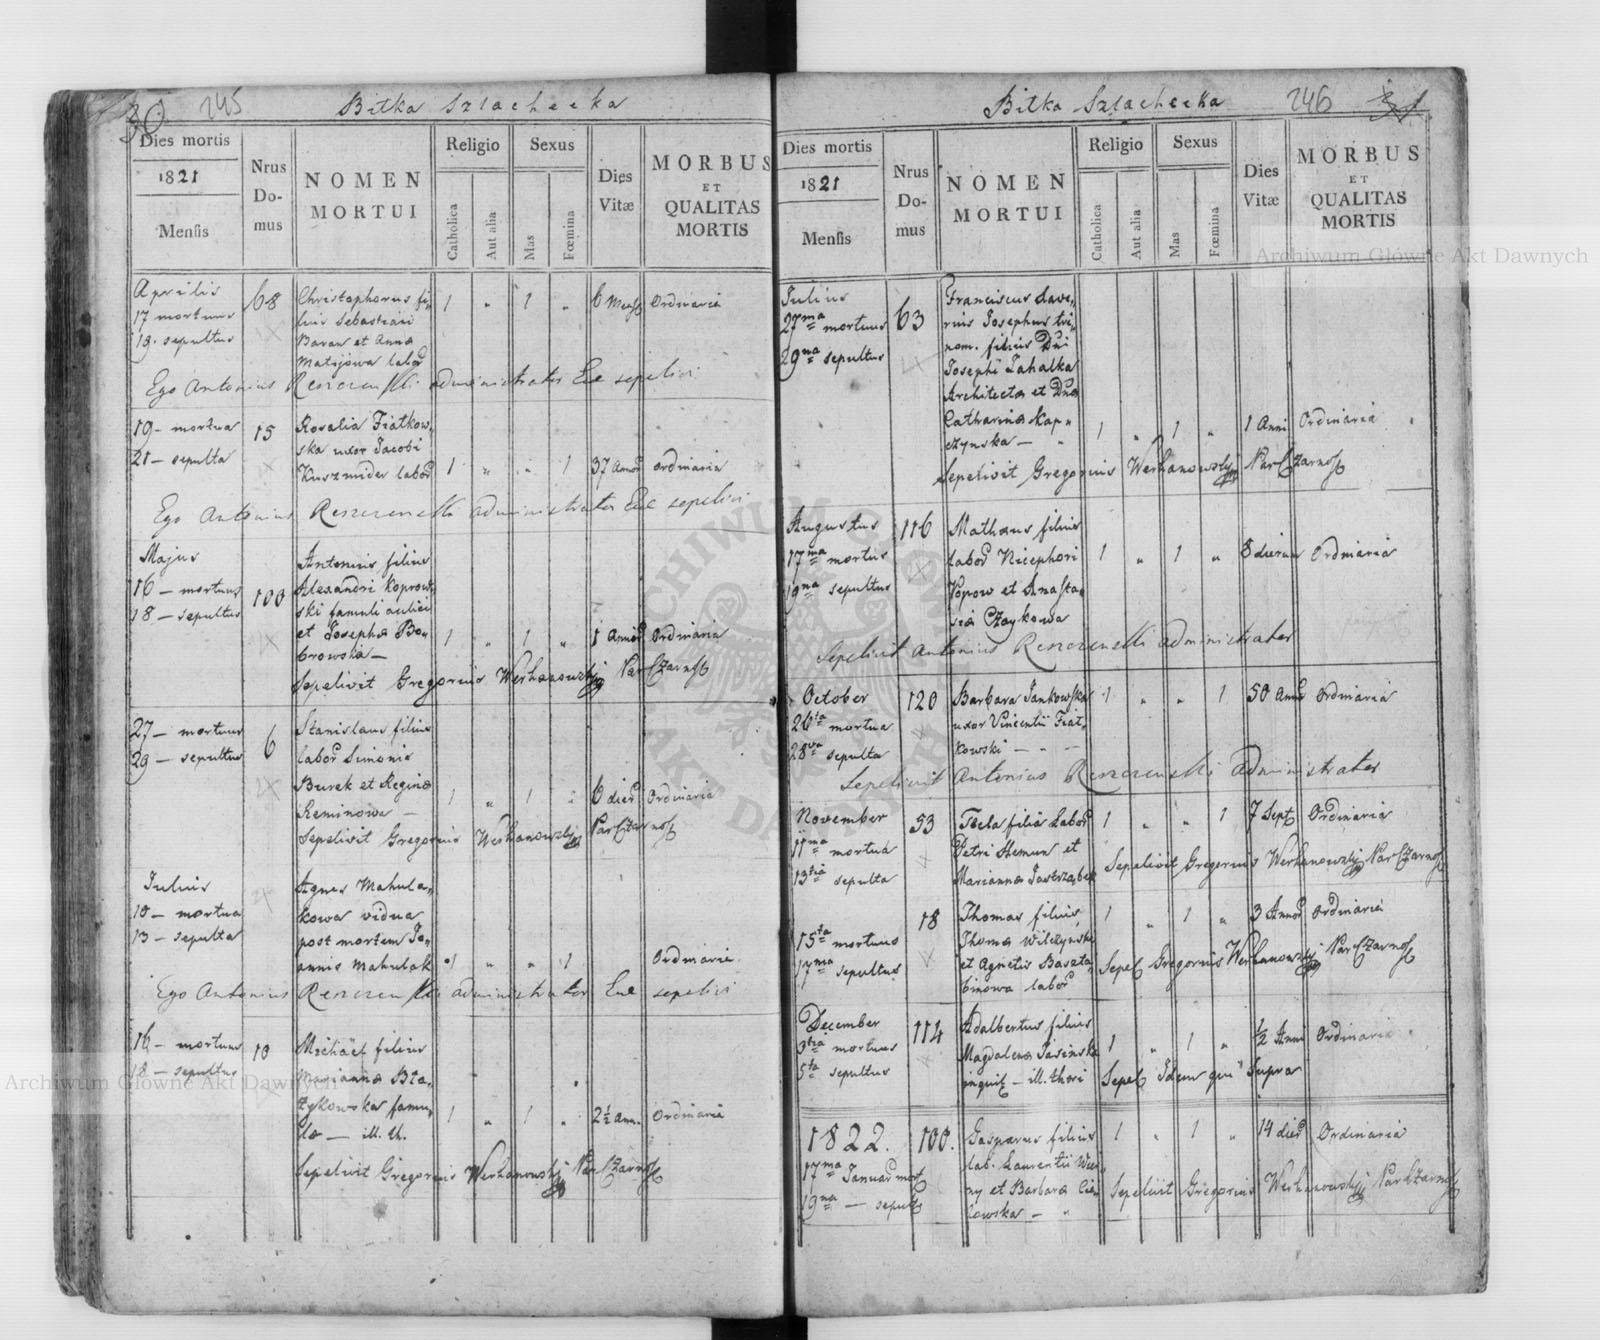 30 245
Bitka Szlachecka
Dies mortis
1821
Mensis
Nrus Do-mus
NOMEN MORTUI
Religio
Catholica
Aut alia
Sexus
Mas
Fœmina
Dies Vitæ
MORBUS ET QUALITAS MORTIS
Aprilis 68 Christophorus fi- 1 " 1 " 6 Mens Ordinaria
17 mortuus lius Sebastiani
19. sepultus Baran et Anna
Matijowa labor
Ego Antonius administrator Ecc sepelivi
19 - mortua 15 Rosalia Fiatkow-
21 - sepulta ska uxor Jacobi
Kuszmider labor 1 " " 1 37 Annor ordinaria
Ego Antonius administrator Ecc sepelivi
Majus Antonius filius
16 - mortuus 100 Alexandri Koprow-
18 - sepultus ski famuli aulici
et Josepha Bo- 1 " 1 " 1 Annor Ordinaria
browska -
Sepelivit Gregorius Werhanowskij Par Czarnos
27 - mortuus 6 Stanislaus filius
29 - sepultus labor Simonis
Burek et Regina 1 " 1 " 6 dier Ordinaria
Reminowa -
Sepelivit Gregorius Werhanowskij Par Czarnos
Julius Agnes Mahula-
10 - mortua kowa vidua
13 - sepulta post mortem Jo-
annis Mahulak 1 " " 1 Ordinaria
Ego Antonius administrator Ecc sepelivi
16 - mortuus 10 Michael filius
18 - sepultus Marianna Bła-
zykowska famu- 1 " 1 " 2½ Ann. Ordinaria
la - ill. th.
Sepelivit Gregorius Werhanowskij Par Czarnos
Bitka Szlachecka
246 31
Dies mortis
1821
Mensis
Nrus Do-mus
NOMEN MORTUI
Religio
Catholica
Aut alia
Sexus
Mas
Fœmina
Dies Vitæ
MORBUS ET QUALITAS MORTIS
Julius Franciscus Xave-
27ma mortuus 63 rius Josephus tri-
nom. filius Dni
29na sepultus Josephi Zahalka
Architecta et Dna
Catharina Kap-
czynska - " 1 " 1 " 1 Anni Ordinaria
Sepelivit Gregorius Werhanowskij Par Czarnos
Augustus 116 Mathæus filius
17ma mortus labor Nicephori 1 " 1 " 8 dierum Ordinaria
19na sepultus Popow et Anasta-
sia Czaykowa
Sepelivit Antonius administrator
October 120 Barbara Jankowska 1 " " 1 50 Annor Ordinaria
26ta mortua uxor Vincentii Fiat-
28va sepulta kowski -
Sepelivit Antonius administrator
November 53 Tecla filia Labor 1 " " 1 7 Sept Ordinaria
11ma mortua Petri Hemun et
13tia sepulta Marianna Jastrząbek
Sepelivit Gregorius Werhanowskij Par Czarnos
18 Thomas filius 1 " 1 " 3 Annor Ordinaria
15ta mortuus Thoma Wilczynski
17ma sepultus et Agnetis Baszta-
binowa labor
Sepel Gregorius Werhanowskij Par Czarnos
December 114 Adalbertus filius
3tia mortuus Magdalena Jasinska 1 " 1 " ½ Anni Ordinaria
5ta sepultus inquil - ill. thori
Sepel Idem qui Supra
1822. 100. Gasparus filius 1 " 1 " 14 dier Ordinaria
17ma Januar mort lab. Laurentii Wier-
19na - sepult ny et Barbara Cie-
lowska - "
Sepelivit Gregorius Werhanowskij Par Czarnos
Archiwum Główne Akt Dawnych
Archiwum Główne Akt Dawnych
ARCHIWUM GŁÓWNE AKT DAWNYCH